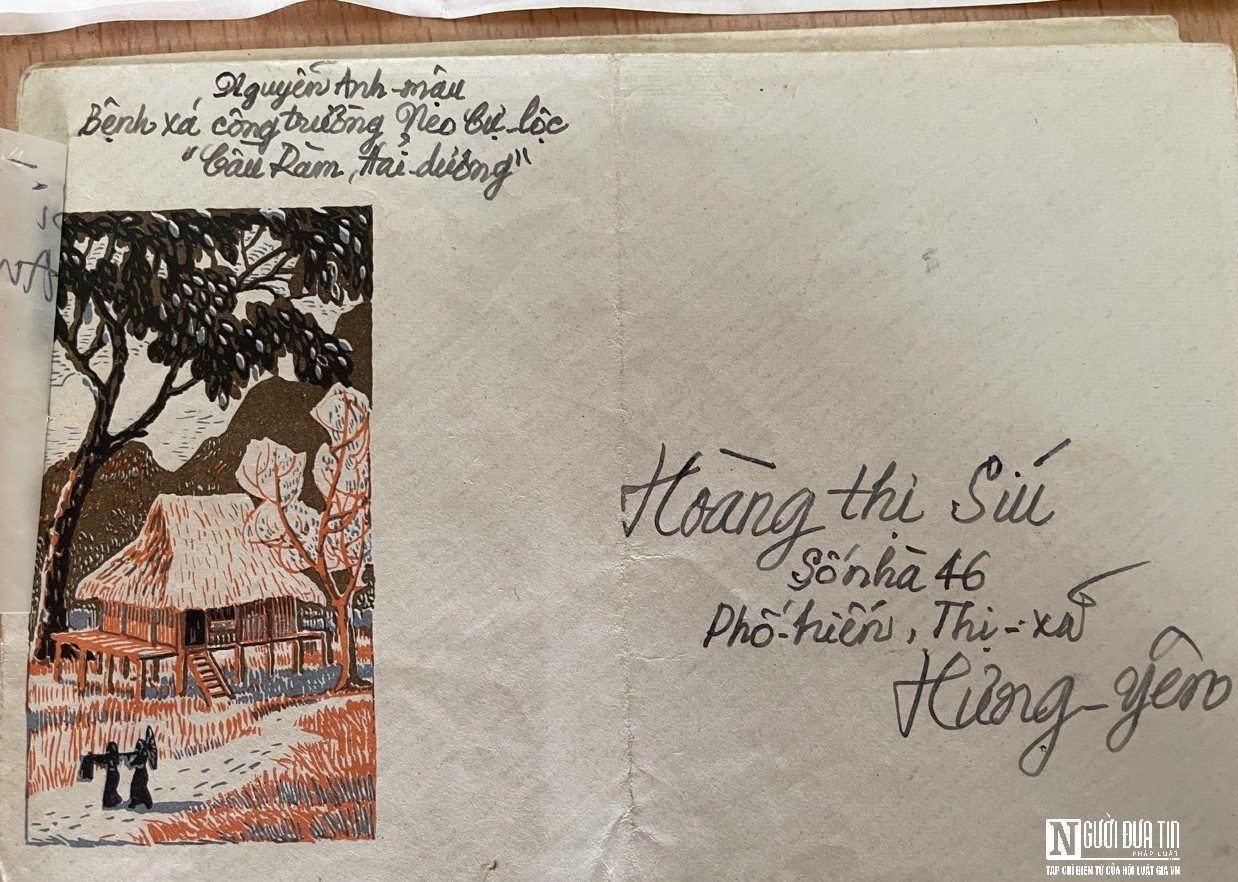 Nguyễn Anh-mậu
Bệnh xá công trường Nẹo Cự-lộc
"Cầu Ràm, Hải-dương"
Hoàng thị Siú
Số nhà 46
Phố-hiến, Thị-xã
Hưng-yên
NGƯỜI ĐƯA TIN
PHÁP LUẬT
TẠP CHÍ ĐIỆN TỬ CỦA HỘI LUẬT GIA VN